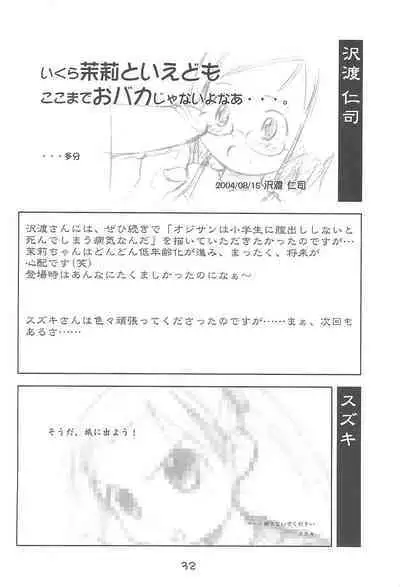 沢渡 仁司
いくら茉莉といえども
ここまでおバカじゃないよなあ・・・。
・・・多分
2004/08/15 沢渡 仁司
沢渡さんには、ぜひ続きで
を描いていただきたかったのですが…
茉莉ちゃんはどんどん低年齢化が進み、まったく、将来が
心配です(笑)
登場時はあんなにたくましかったのになぁ～
スズキさんは色々頑張ってくださったのですが……まぁ、次回も
あるさ……
スズキ
そうだ、旅に出よう！
スズキ
32